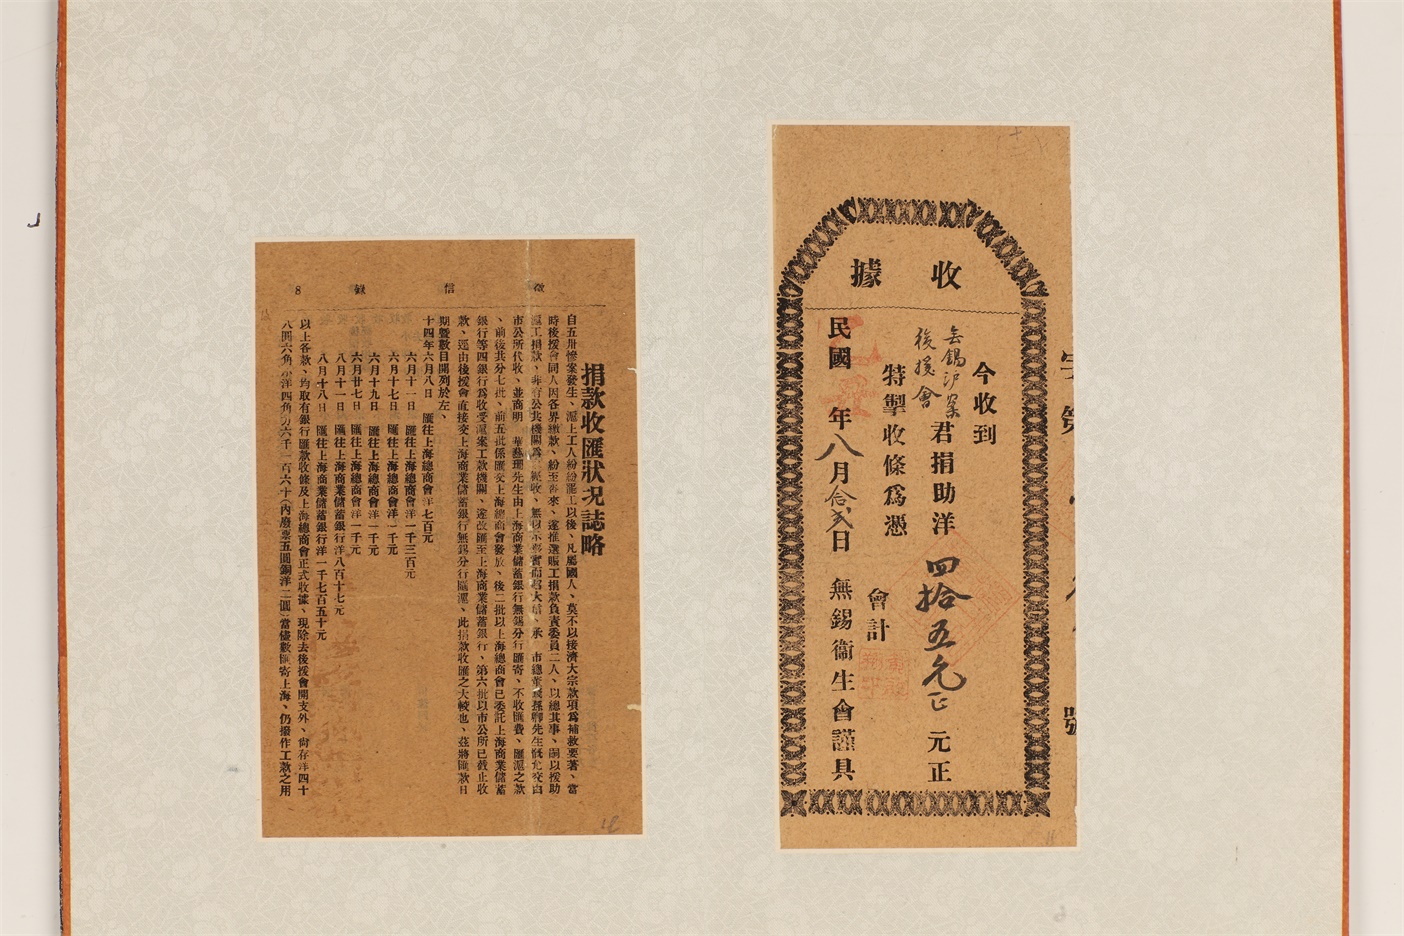 收據
今收到
無錫滬案後援會君捐助洋四拾五元正元正
特掣收條爲憑
會計
民國 年八月拾弍日 無錫衞生會謹具
第
號
徵信錄 8
捐款收匯狀况誌略
自五卅慘案發生、滬上工人紛紛罷工以後、凡屬國人、莫不以接濟大宗款項爲補救要著、當
時後援會同人因各界繳款、紛至沓來、遂推選賑工捐款負責委員二人、以總其事、嗣以援助
滬工捐款、非有公共機關爲 經收、無以示 實而昭大信、承 市總董 孫卿先生慨允交由
市公所代收、並商明 華藝珊先生由上海商業儲蓄銀行無錫分行匯寄、不收匯費、匯滬之款
、前後共分七批、前五批係匯交上海總商會發放、後二批以上海總商會已委託上海商業儲蓄
銀行等四銀行爲收受滬案工款機關、遂改匯至上海商業儲蓄銀行、第六批以市公所已截止收
款、逕由後援會直接交上海商業儲蓄銀行無錫分行匯滬、此捐款收匯之大輳也、茲將匯款日
期曁數目開列於左、
十四年六月八日 匯往上海總商會洋七百元
六月十一日 匯往上海總商會洋一千三百元
六月十七日 匯往上海總商會洋一千元
六月十九日 匯往上海總商會洋一千元
六月廿七日 匯往上海總商會洋一千元
八月十一日 匯往上海商業儲蓄銀行洋八百十七元
八月十八日 匯往上海商業儲蓄銀行洋一千七百五十元
以上各款、均取有銀行匯款收條及上海總商會正式收據、現除去後援會開支外、尙存洋四十
八圓六角小洋四角 六千一百六十（內廢票五圓銅洋二圓）當儘數匯寄上海、仍撥作工款之用